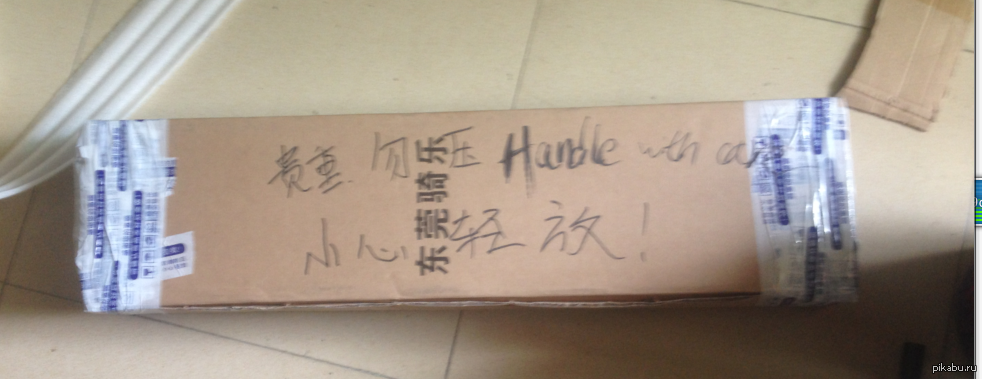 贵重 勿压 Handle with care
小心轻放!
东莞骑乐
pikabu.ru